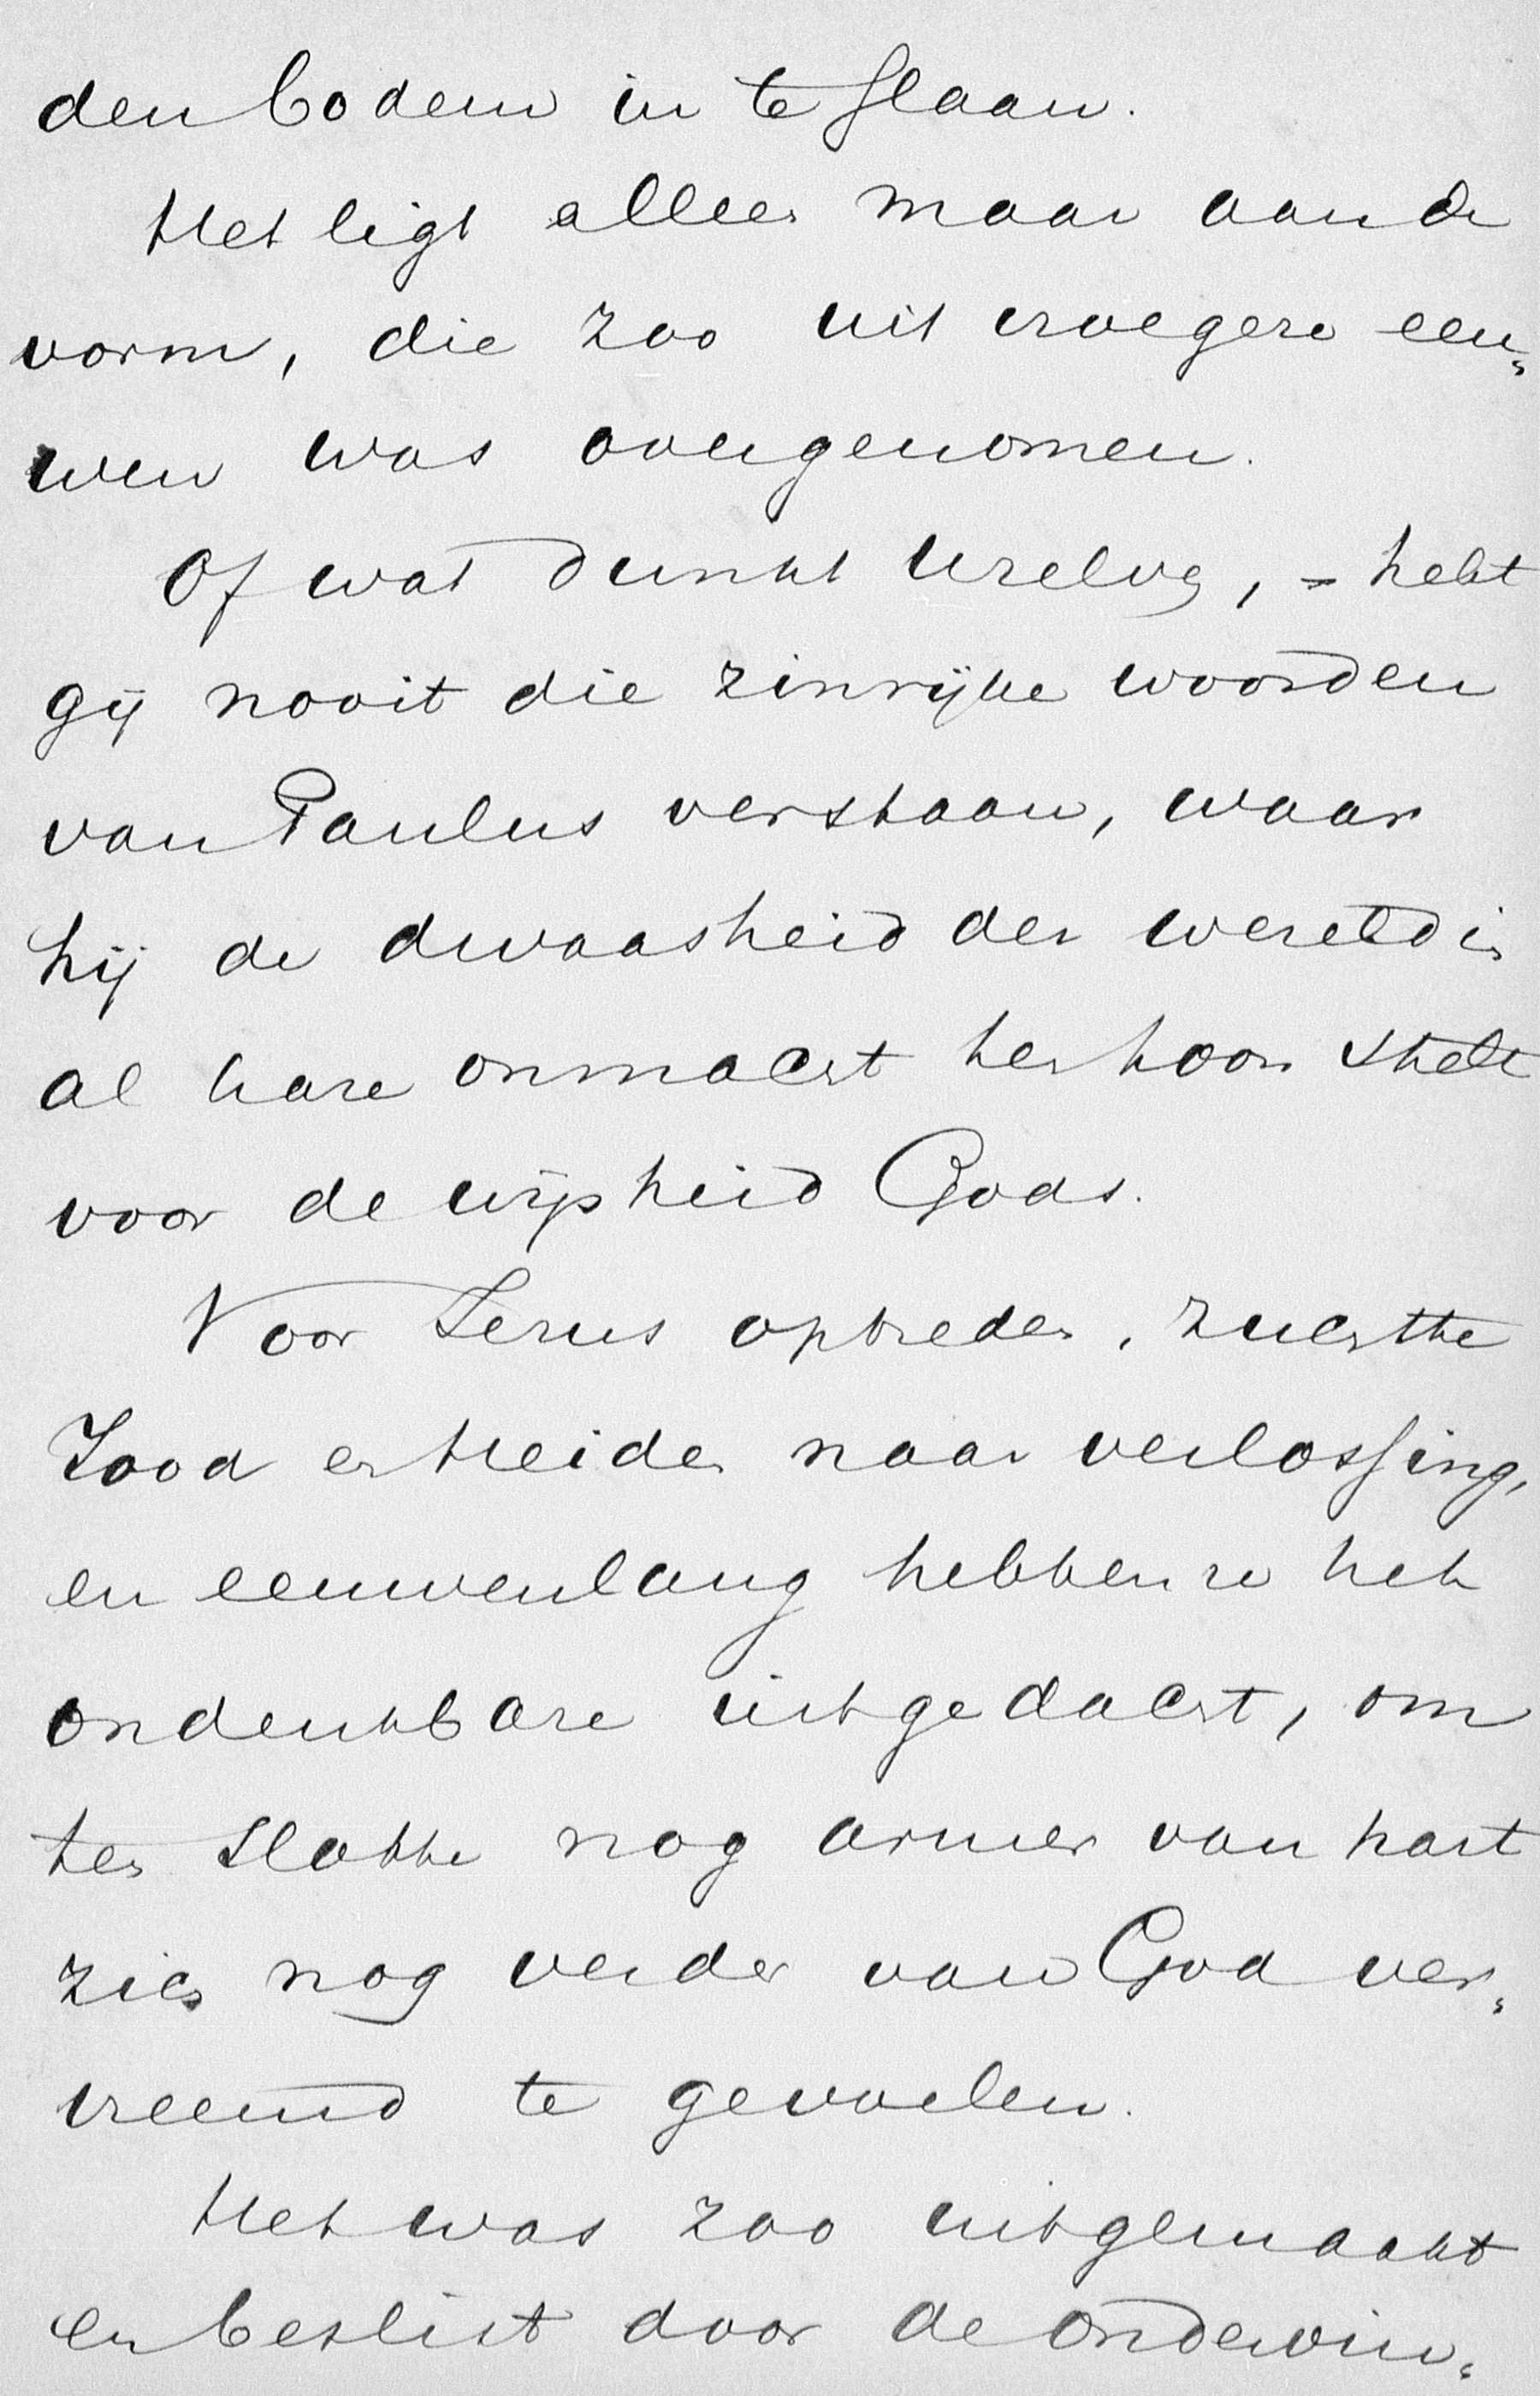 den bodem in te slaan.
Het ligt alles maar aan de
vorm, die zoo uit vroegere eeu-
wen was overgenomen.
Of wat dunkt Uzelve, - hebt
gij nooit die zinrijke woorden
van Paulus verstaan, waar
hij de dwaasheid der wereld in
al hare onmacht ten toon stelt
voor de wijsheid Gods.
Voor Jezus optreden, zuchtte
Jood en Heiden naar verlossing,
en eeuwenlang hebben ze het
ondenkbare uitgedacht, om
ten slotte nog armer van hart
zich nog verder van God ver-
vreemd te gevoelen.
Het was zoo uitgemaakt
en beslist door de ondervin-